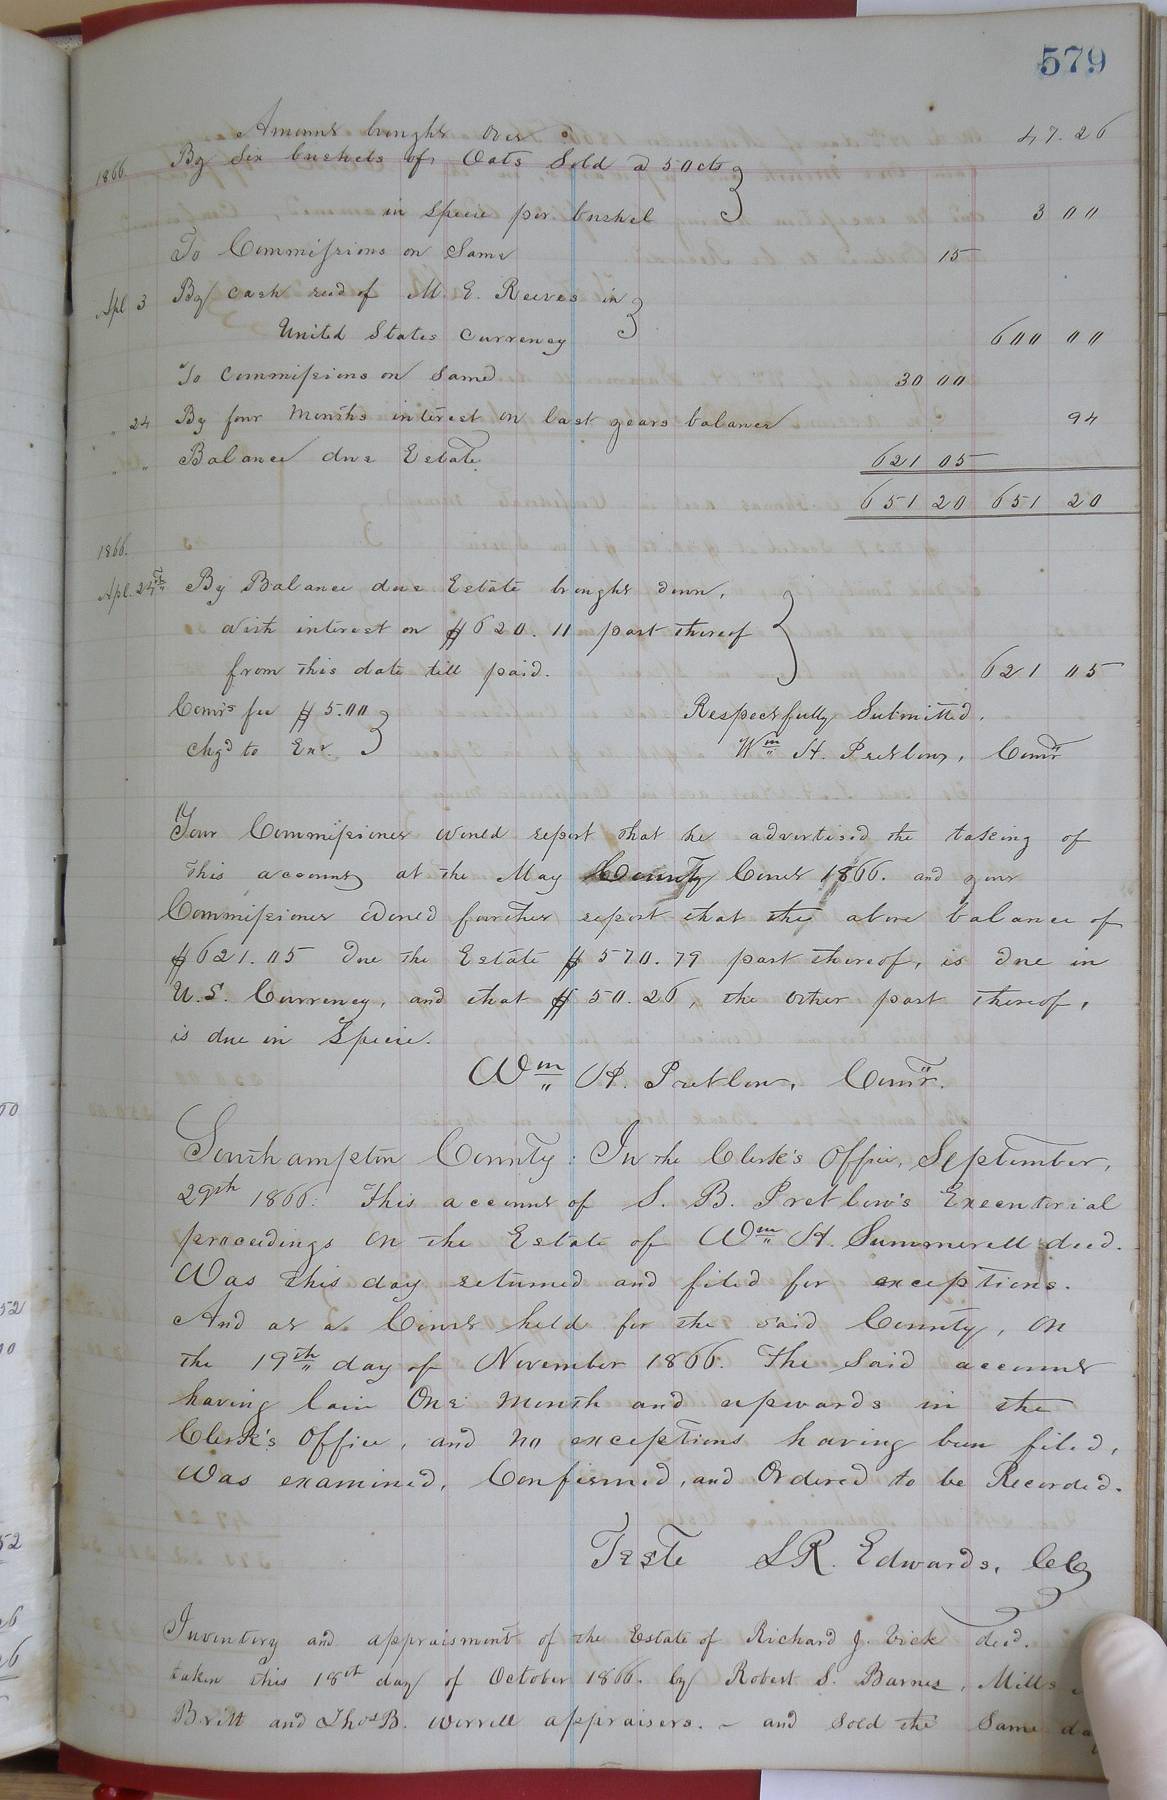 579
Amount brought over 47.26
1866. By Six bushels of Oats Sold @ 50 cts
in specie per bushel 3 00
To Commissions on Same 15
Apl 3 By cash recd of M. E. Reeves in
United States currency 600 00
To commissions on Same 30 00
" 24 By four Months interest on last years balance 94
" " Balance due Estate 621 05
651 20 651 20
1866.
Apl. 24th By Balance due Estate brought down,
with interest on $620.11 part thereof
from this date till paid. 621 05
Comrs fee $5.00 Respectfully Submitted,
chgd to Exr. Wm H. Pretlow, Comr
Your Commissioner would report that he advertised the taking of
this account at the May County Court 1866. and your
Commissioner would further report that the above balance of
$621.05 due the Estate $570.79 part thereof, is due in
U.S. Currency, and that $50.26, the other part thereof,
is due in Specie.
Wm H. Pretlow, Comr.
Southampton County: In the Clerk's Office, September,
29th 1866: This account of S. B. Pretlow's Executorial
proceedings on the Estate of Wm H. Summerell decd.
Was this day returned and filed for exceptions.
And at a Court held for the said County, on
the 19th day of November 1866. The Said account
having lain One Month and upwards in the
Clerk's Office, and no exceptions having been filed,
Was examined, Confirmed, and Ordered to be Recorded.
Teste L R. Edwards, CC
Inventory and appraisment of the Estate of Richard J. Vick decd.
taken this 18th day of October 1866. by Robert S. Barnes, Mills
Britt and Thos B. Worrell appraisers. - and Sold the Same